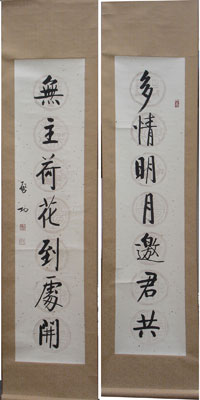 多情明月邀君共
無主荷花到處開
啓功